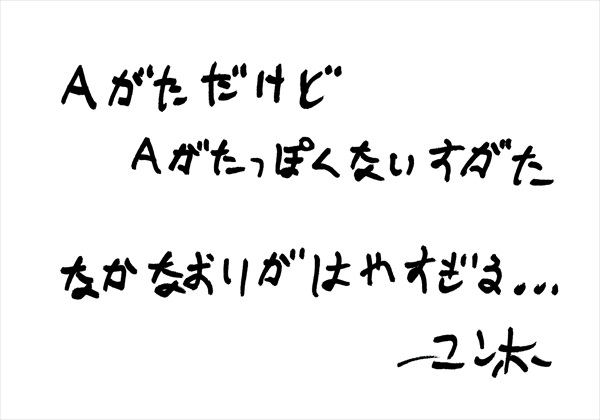 Aがただけど
Aがたっぽくないすがた
なかなおりがはやすぎる...
ーユンホー